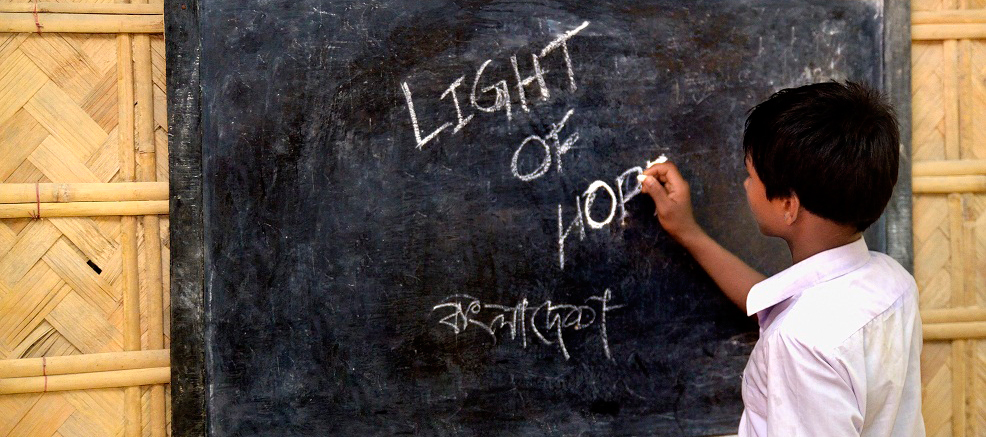 LIGHT
OF
HOPE
বাংলাদেশ